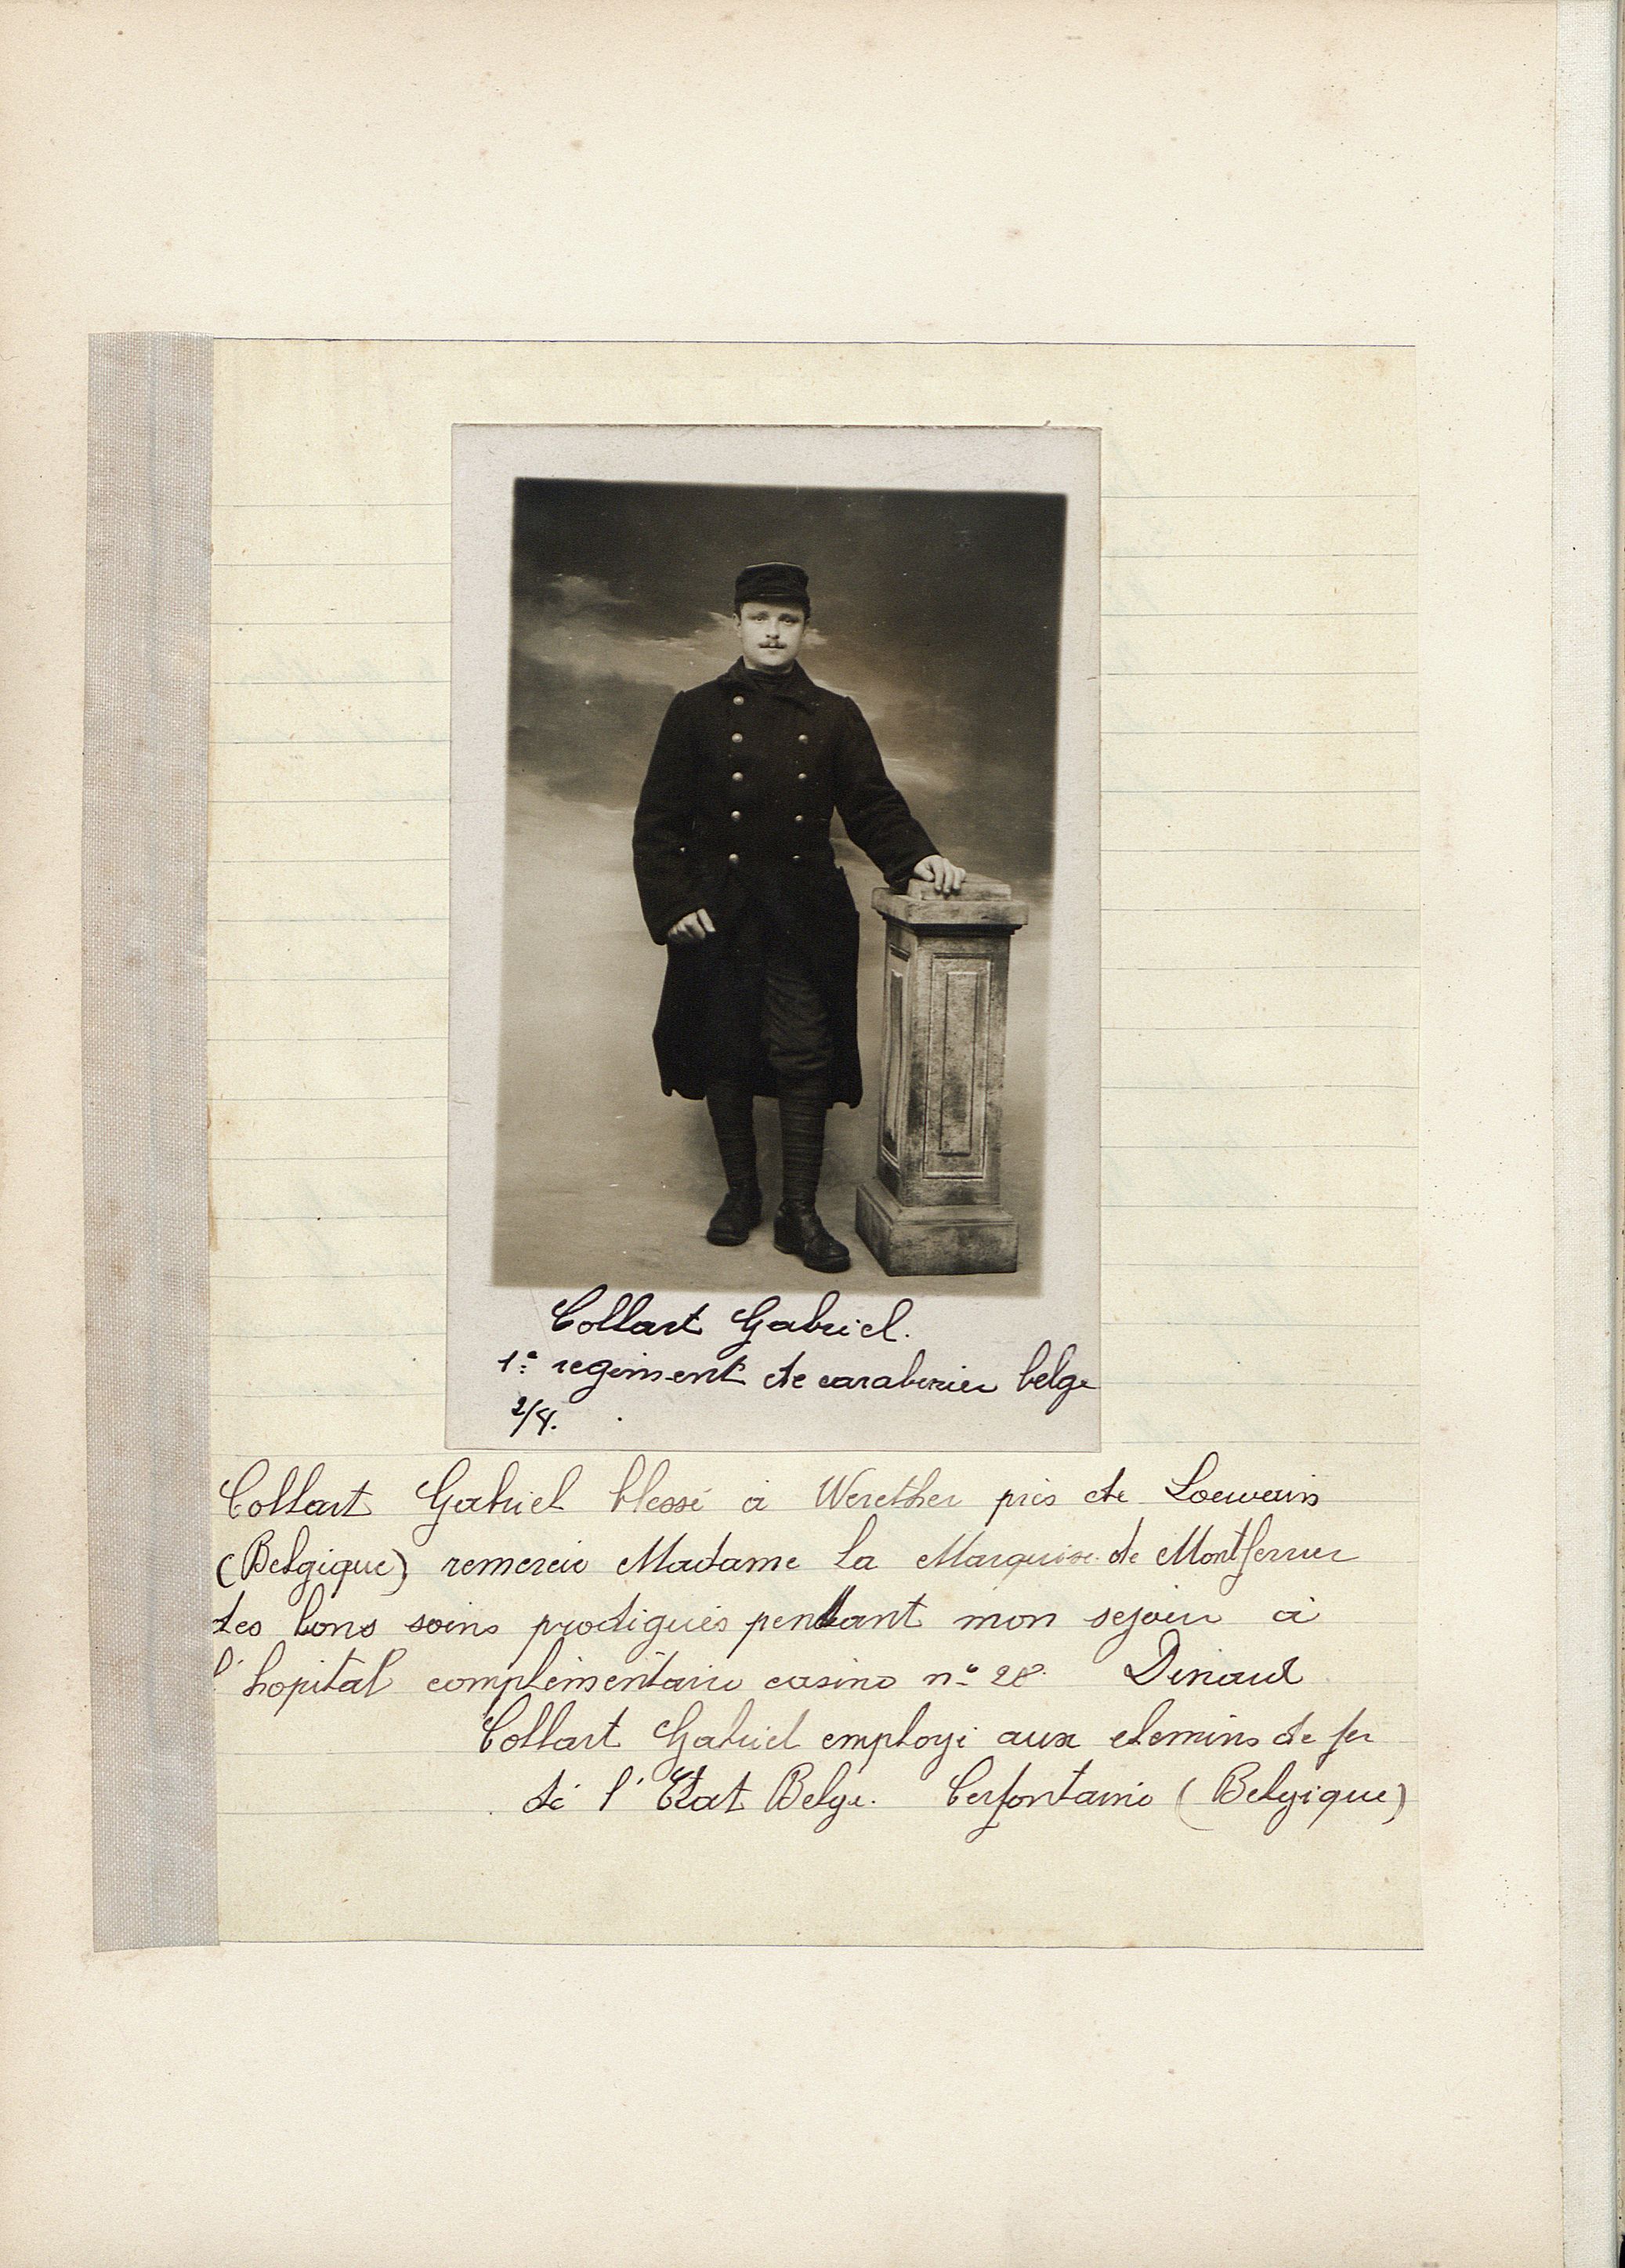 Collart Gabriel.
1e regiment de carabinier belge
2/4.
Collart Gabriel blessé a Werether près de Loewain
(Belgique) remercie Madame la Marquise de Montferrier
des bons soins prodigués pendant mon sejour à
l'hopital complémentaire casino n° 28 Dinard
Collart Gabriel employé aux chemins de fer
de l'Etat Belge. Cerfontaine (Belgique)